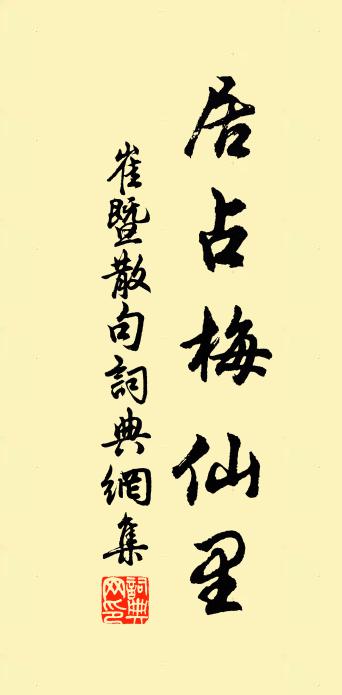 居占梅仙里
崔暨散句詞典網集
詞典网印